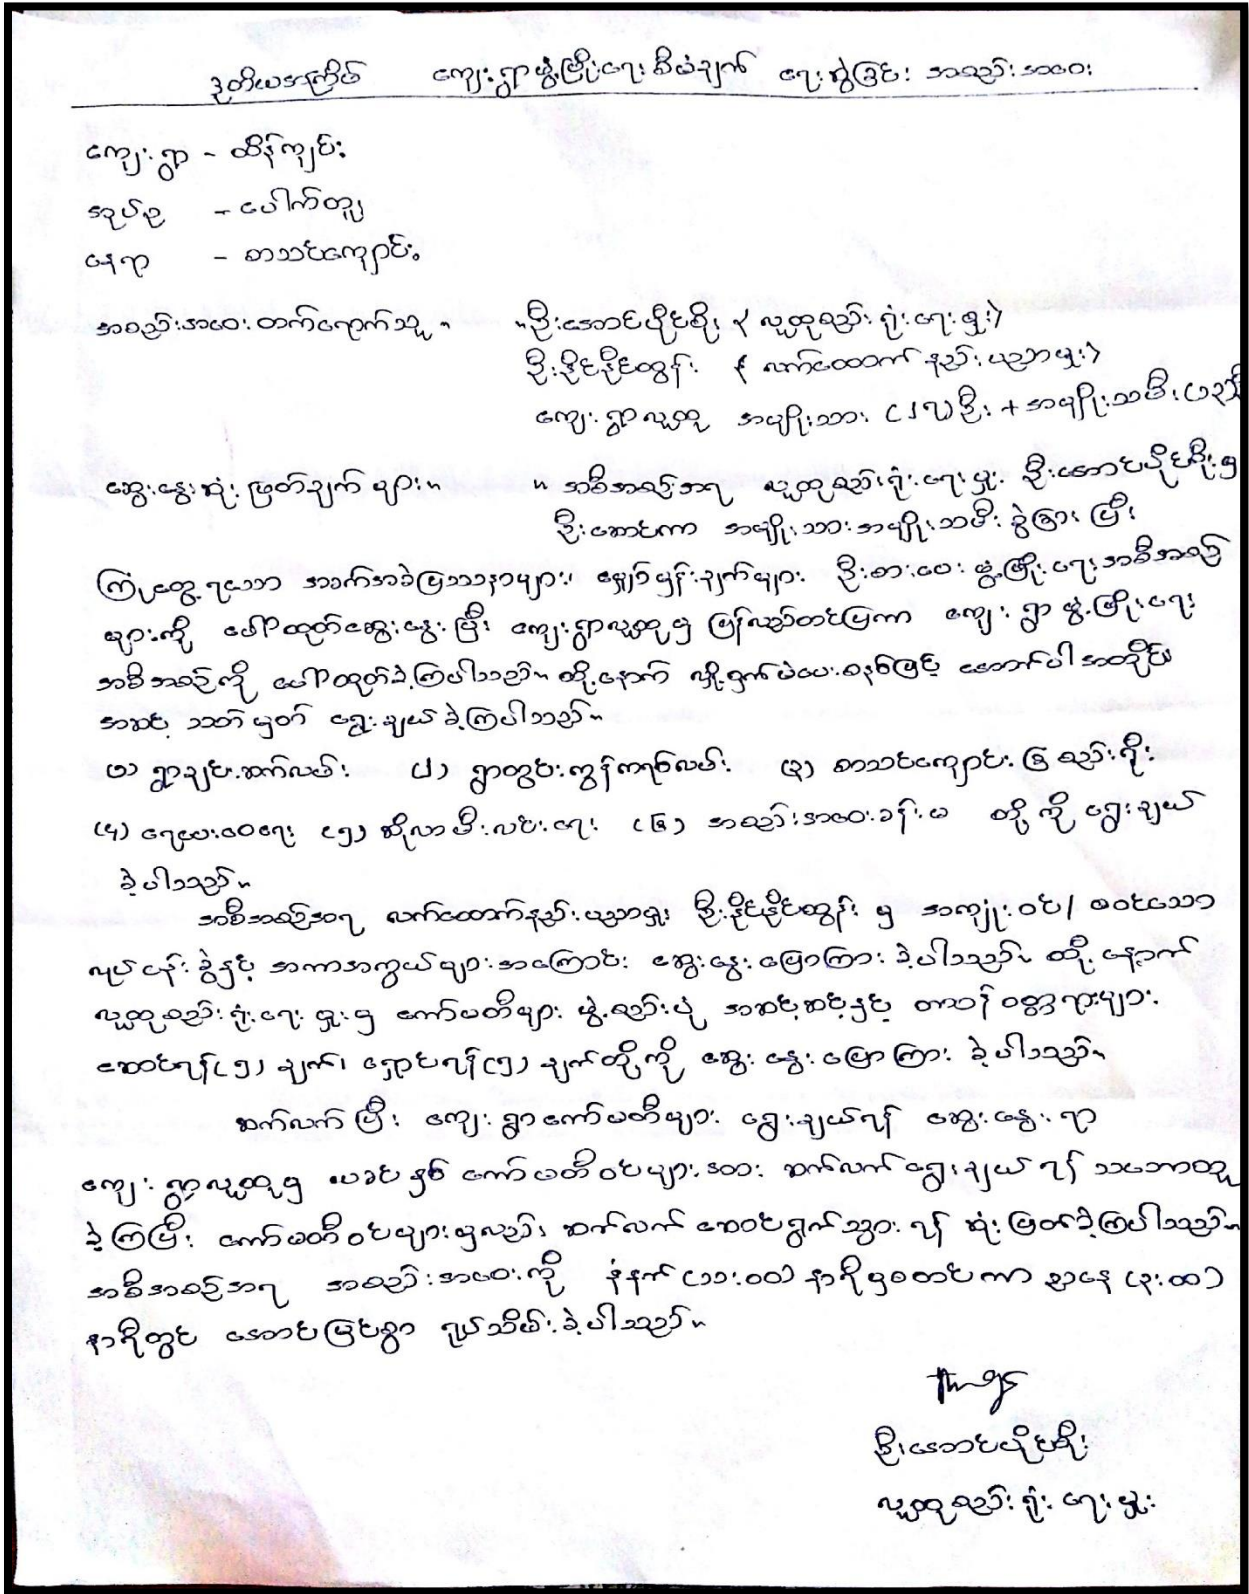 ဒုတိယအကြိမ် ကျေးရွာဖွံ့ဖြိုးရေးစီမံချက် ရေးဆွဲခြင်း အစည်းအဝေး
ကျေးရွာ - ထိန်ကျင်း
အုပ်စု - ပေါက်တူ
နေရာ - စာသင်ကျောင်း
အစည်းအဝေးတက်ရောက်သူ။ ။ဦးအောင်ပိုင်စိုး (လူထုစည်းရုံးရေးမှူး)
ဦးနိုင်နိုင်ထွန်း (လက်ထောက်နည်းပညာမှူး)
ကျေးရွာလူထု အမျိုးသား (၂၇)ဦး + အမျိုးသမီး (၁၃)ဦး
ဆွေးနွေးဆုံးဖြတ်ချက်များ။ ။အစီအစဉ်အရ လူထုစည်းရုံးရေးမှူး ဦးအောင်ပိုင်စိုးမှ
ဦးဆောင်ကာ အမျိုးသားအမျိုးသမီး ခွဲခြားပြီး
ကြုံတွေ့ရသော အခက်အခဲပြဿနာများ၊ မျှော်မှန်းချက်များ ဦးစားပေး ဖွံ့ဖြိုးရေးအစီအစဉ်
များကို ဖော်ထုတ်ဆွေးနွေးပြီး ကျေးရွာလူထုမှ ပြန်လည်တင်ပြကာ ကျေးရွာဖွံ့ဖြိုးရေး
အစီအစဉ်ကို ဖော်ထုတ်ခဲ့ကြပါသည်။ ထို့နောက် လျှို့ဝှက်မဲပေးစနစ်ဖြင့် အောက်ပါအတိုင်း
အဆင့်သတ်မှတ် ရွေးချယ်ခဲ့ကြပါသည်။
(၁) ရွာချင်းဆက်လမ်း (၂) ရွာတွင်းကွန်ကရစ်လမ်း (၃) စာသင်ကျောင်းခြံစည်းရိုး
(၄) ရေပေးဝေရေး (၅) ဆိုလာမီးလင်းရေး (၆) အစည်းအဝေးခန်းမ တို့ကို ရွေးချယ်
ခဲ့ပါသည်။
အစီအစဉ်အရ လက်ထောက်နည်းပညာမှူး ဦးနိုင်နိုင်ထွန်း မှ အကျုံးဝင်/မဝင်သော
လုပ်ငန်းခွဲနှင့် အကာအကွယ်များအကြောင်း ဆွေးနွေးပြောကြားခဲ့ပါသည်။ ထို့နောက်
လူထုစည်းရုံးရေးမှူးမှ ကော်မတီများ ဖွဲ့စည်းပုံ အဆင့်ဆင့်နှင့် တာဝန်ဝတ္တရားများ
ဆောင်ရန်(၅)ချက်၊ ရှောင်ရန်(၅)ချက်တို့ကို ဆွေးနွေးပြောကြားခဲ့ပါသည်။
ဆက်လက်ပြီး ကျေးရွာကော်မတီများ ရွေးချယ်ရန် ဆွေးနွေးရာ
ကျေးရွာလူထုမှ ယခင်နှစ် ကော်မတီဝင်များအား ဆက်လက်ရွေးချယ်ရန် သဘောတူ
ခဲ့ကြပြီး ကော်မတီဝင်များမှလည်း ဆက်လက်ဆောင်ရွက်သွားရန် ဆုံးဖြတ်ခဲ့ကြပါသည်။
အစီအစဉ်အရ အစည်းအဝေးကို နံနက် (၁၁:၀၀) နာရီမှစတင်ကာ ညနေ (၃:၀၀)
နာရီတွင် အောင်မြင်စွာ ရုပ်သိမ်းခဲ့ပါသည်။
ဦးအောင်ပိုင်စိုး
လူထုစည်းရုံးရေးမှူး